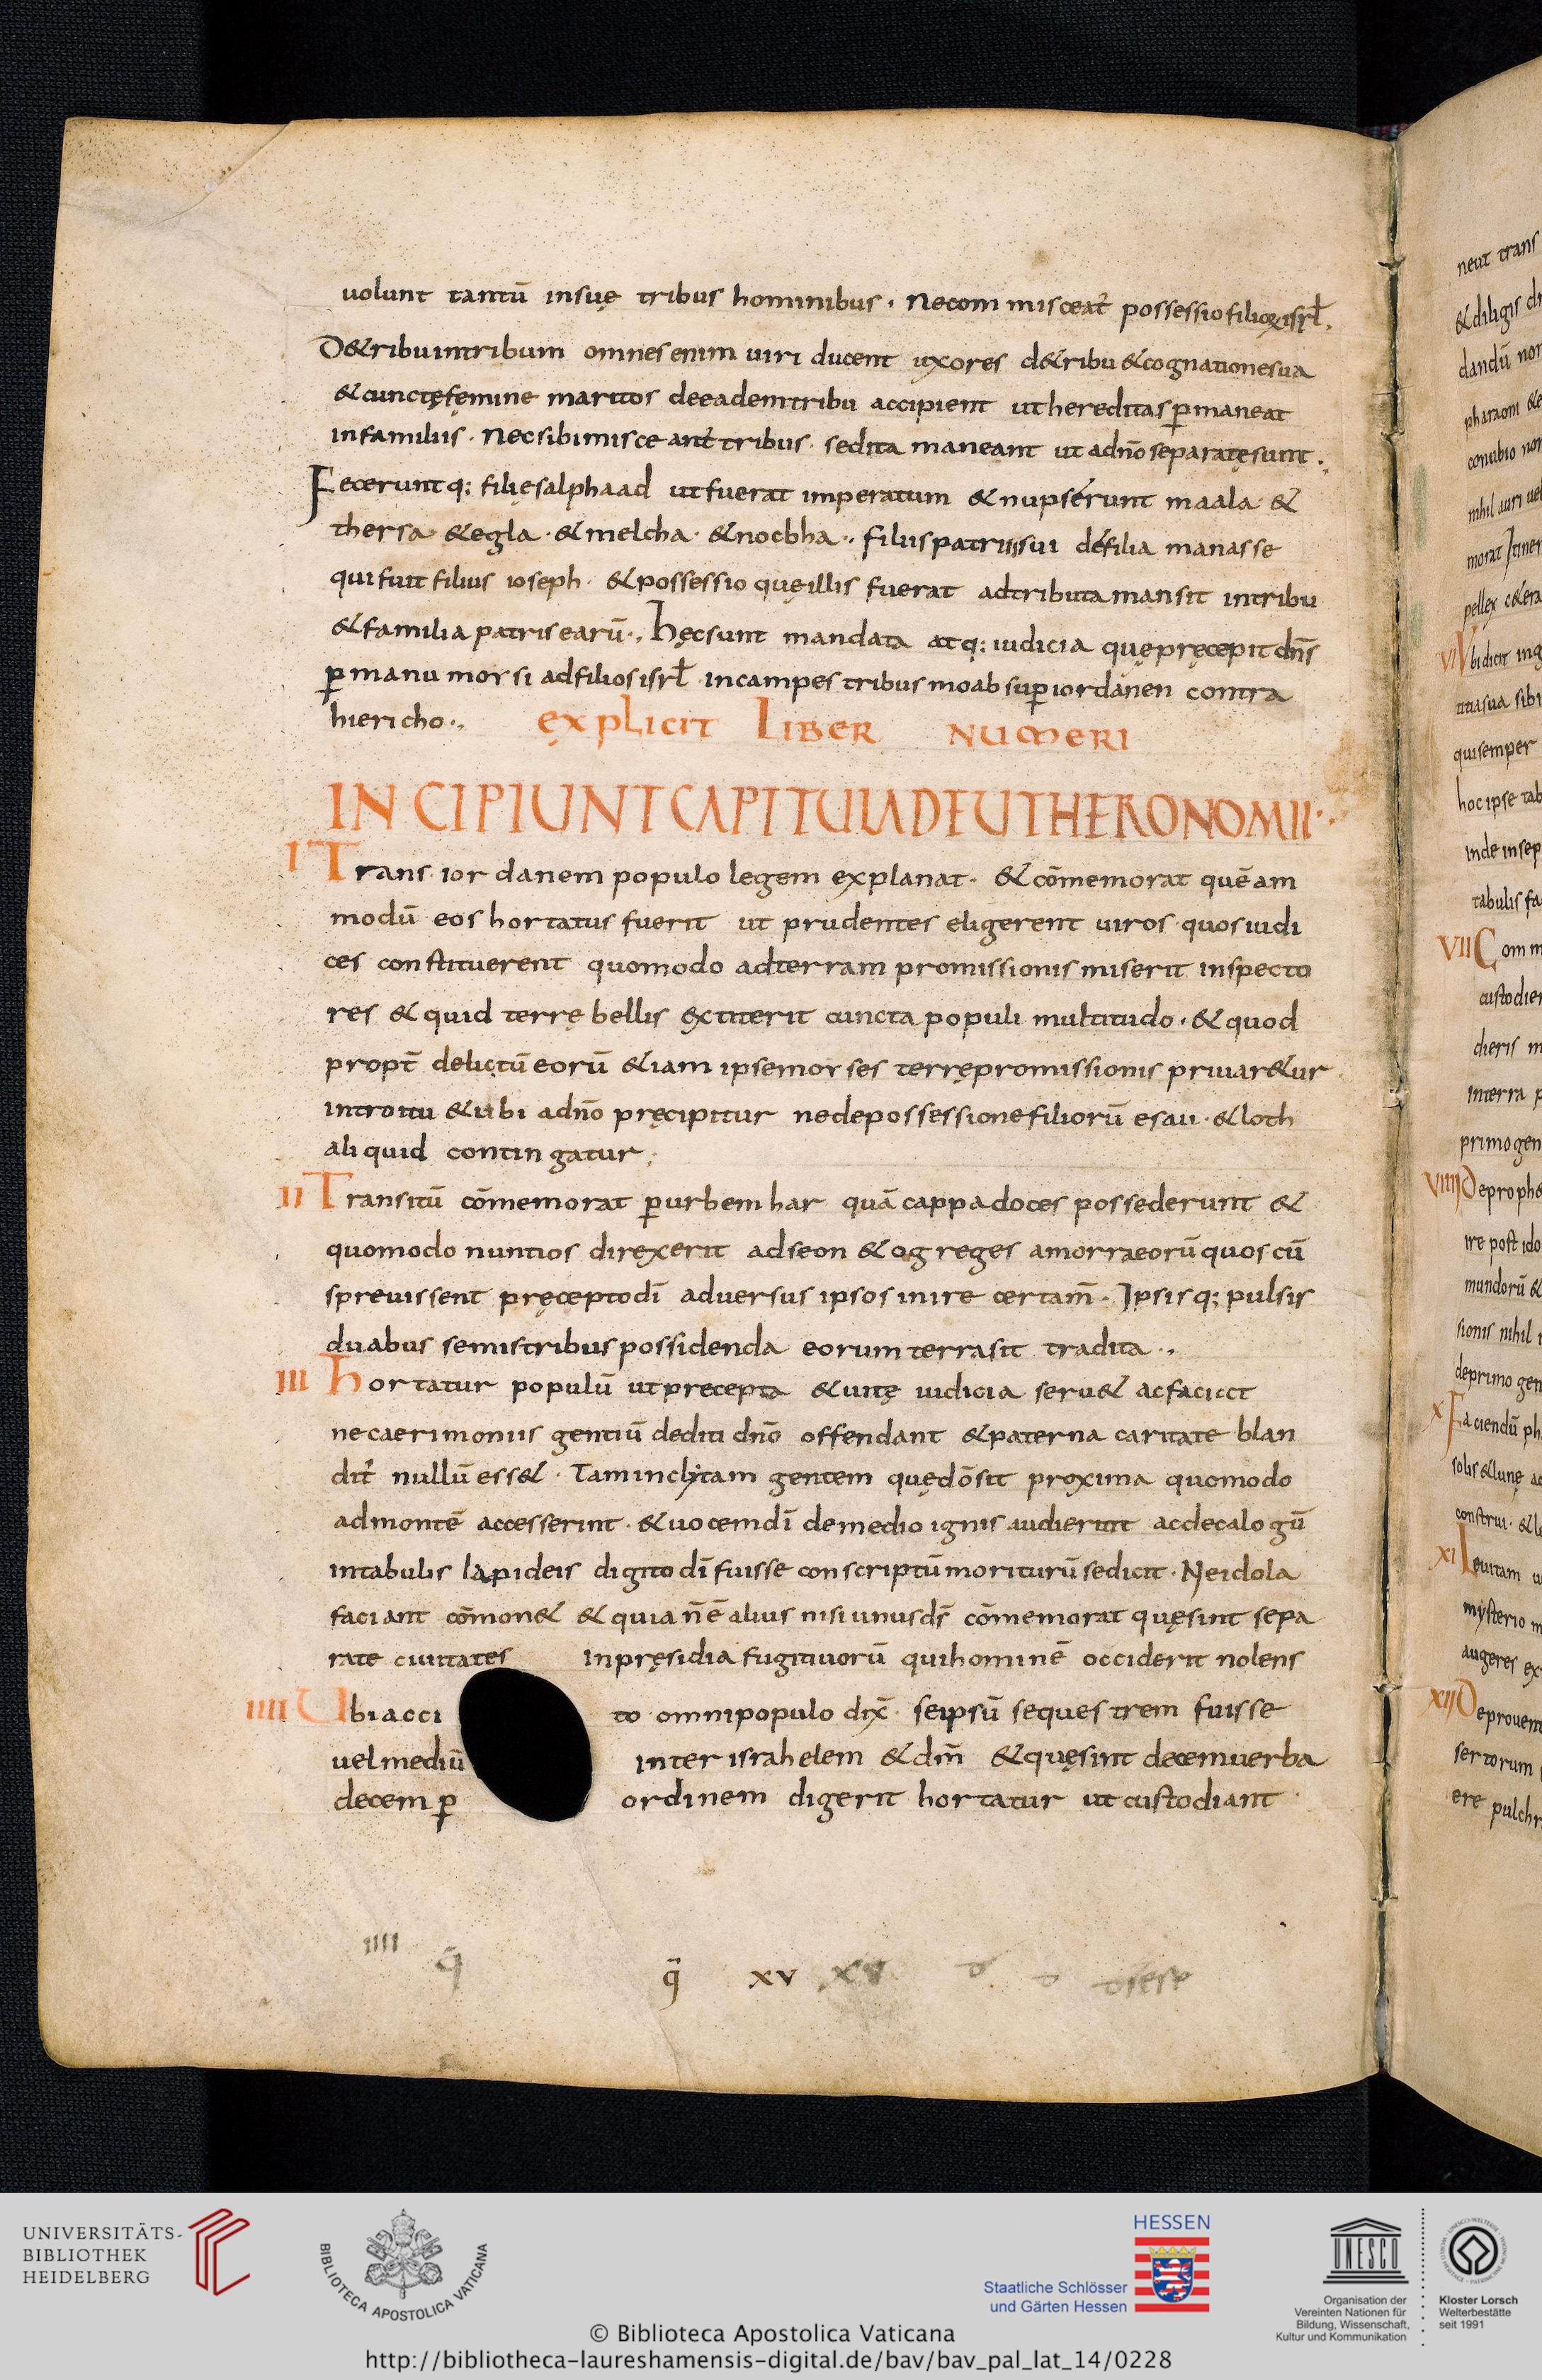 uolunt tantū insuę tribus hominibus · Necom misceat᷑ possessio filioꝝ isrł ·
D&ribuintribum omnes enim uiri ducent uxores d&ribu &cognationesua
&cunctęfemine maritos deeademtribu accipient uthereditasꝑmaneat
infamiliis · Necsibimisceant᷑ tribus · sedita maneant ut adn̄o separatęsunt ·
Feceruntq; filiesalphaad utfuerat imperatum &nupserunt maala &
thersa &egla · &melcha · &nocbha · filiispatruisui defilia manasse
qui fuit filius ioseph · &possessio quęillis fuerat adtributa mansit intribu
&familia patris earū · hęcsunt mandata atq; iudicia quępręcepit dn̄s
ꝑ manu morsi adfilios isrł incampestribus moab suꝑ iordanen contra
hiericho ·, explicit Liber numeri
INCIPIUNT CAPITULA DEUTHERONOMII ·
I Trans ior danem populo legem explanat · &cōmemorat quēam
modū eos hortatus fuerit ut prudentes eligerent uiros quos iudi
ces constituerent quomodo adterram promissionis miserit inspecto
res & quid terrę bellis extiterit cuncta populi multitudo · & quod
propt̄ delictū eorū &iam ipsemorses terrępromissionis priuar&ur
introitu &ubi adn̄o pręcipitur nedepossessionefiliorū esau · &loth
aliquid contingatur ;
II Transitū cōmemorat ꝑurbem har quā cappadoces possederunt &
quomodo nuntios direxerit adseon & og reges amorraeorū quos cū
spreuissent pręceptodī aduersus ipsos inire certam̄ · Ipsisq; pulsis
duabus semistribus possidenda eorum terrasit tradita ·,
III hortatur populū utprecepta &uitę iudicia seru& acfaciet
necaerimoniis gentiū dediti dn̄o offendant &paterna caritate blan
dit᷑ nullū ess& · Taminclytam gentem quędōsit proxima quomodo
admontē accesserint · &uocemdī demedio ignis audierint acdecalogū
intabulis lapideis digito dī fuisse conscriptū moriturūsedicit · Neidola
faciant cōmon& & quia n̄ ē alius nisi unusds̄ cōmemorat quęsint sepa
rate ciuitates inpręsidia fugitiuorū quihominē occiderit nolens
IIII Ubiacci to omnipopulo dix̄ · seipsū sequestrem fuisse
uelmediū inter israhelem & dm̄ &quęsint decemuerba
decem ꝑ ordinem digerit hortatur ut custodiant
IIII q̄ q̄ xv xv
neut trans
&diligis
pharaoni
conubio non
VI Ubi dicit
quisemper
hoc ipse tab
inde insep
tabulis fa
VII Comm
custodie
dieris
interra
primogen
VIIII Deproph
ire post ido
mundorū &
sionis nihil
deprimogen
X Faciendū
solis &lunę
construi
XI Leuitam
mysterio
augeres
XII Deprouen
sertorum
ere pulchr
UNIVERSITÄTS-
BIBLIOTHEK
HEIDELBERG
BIBLIOTECA APOSTOLICA VATICANA
HESSEN
Staatliche Schlösser
und Gärten Hessen
UNESCO
Organisation der
Vereinten Nationen für
Bildung, Wissenschaft,
Kultur und Kommunikation
Kloster Lorsch
Welterbestätte
seit 1991
© Biblioteca Apostolica Vaticana
http://bibliotheca-laureshamensis-digital.de/bav/bav_pal_lat_14/0228